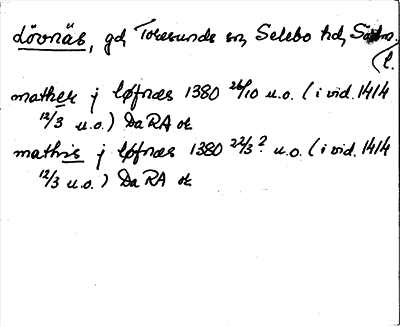 Lövnäs, gd, Toresunds sn, Selebo hd, Södms. l.
mather j løfnæs 1380 26/10 u.o. (i vid. 1414
12/3 u.o.) DaRA or.
mathis j løfnæs 1380 22/3? u.o. (i vid. 1414
12/3 u.o.) DaRA or.